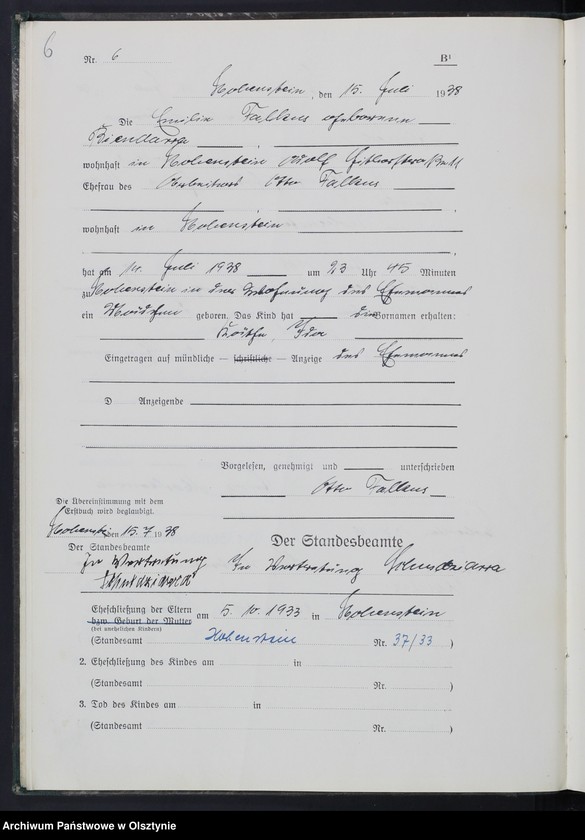 6
Nr. 6 B¹
Hohenstein, den 15. Juli 1938
Die Emilie Fallens geborene
wohnhaft in Hohenstein Adolf Hitlerstraße
Ehefrau des Otto Fallens
wohnhaft in Hohenstein
hat am 14. Juli 1938 um 23 Uhr 45 Minuten
zu Hohenstein in der Wohnung des Ehemannes
ein Mädchen geboren. Das Kind hat die Vornamen erhalten:
Käthe, Ida
Eingetragen auf mündliche — schriftliche — Anzeige des Ehemannes
D Anzeigende
Vorgelesen, genehmigt und unterschrieben
Otto Fallens
Die Übereinstimmung mit dem
Erstbuch wird beglaubigt.
Hohenstein, den 15.7.1938
Der Standesbeamte
In Vertretung
Der Standesbeamte
In Vertretung
Eheschließung der Eltern am 5. 10. 1933 in Hohenstein
bzw. Geburt der Mutter
(bei unehelichen Kindern)
(Standesamt Hohenstein Nr. 37/33)
2. Eheschließung des Kindes am in
(Standesamt Nr. )
3. Tod des Kindes am in
(Standesamt Nr. )
Archiwum Państwowe w Olsztynie